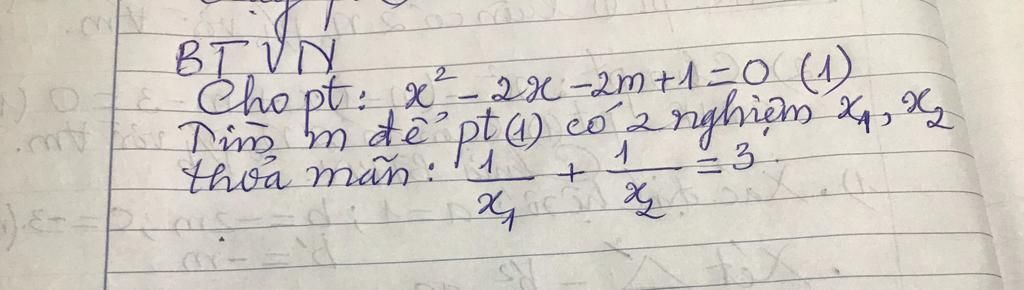 BTVN
Cho pt: x² - 2x - 2m + 1 = 0 (1)
Tìm m để pt(1) có 2 nghiệm x₁, x₂
thỏa mãn: 1/x₁ + 1/x₂ = 3